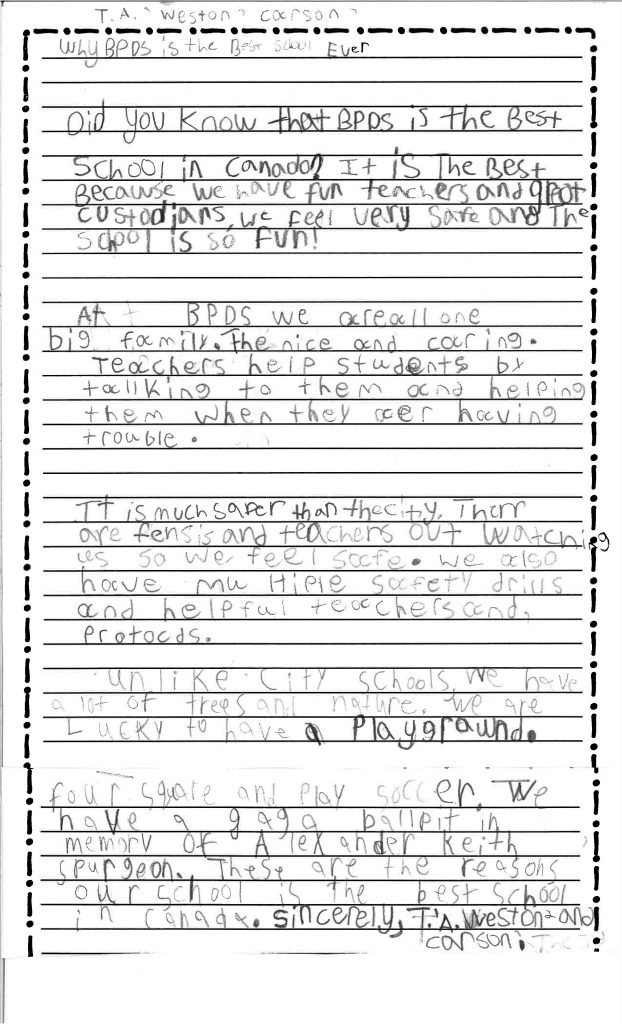 T.A. Weston Carson
Why BPDS is the Best School Ever
Did you Know that BPDS is the Best
School in Canada? It is The Best
Because we have fun teachers and great
custodians, we feel very safe and The
School is so fun!
At BPDS we are all one
big family. The nice and caring.
Teachers help students by
tallking to them and helping
them when they aer having
trouble.
It is much safer than the city. Therr
are fensis and teachers out watching
us so we feel safe. we also
have multiple safety drills
and helpful teachers and,
Protocds.
unlike City schools, we have
a lot of trees and nature. We are
Lucky to have a Playgrawnd.
four square and play soccer. We
have a gaga ballpit in
memory of Alexander Keith
Spurgeon. These are the reasons
our school is the best school
in Canada. sincerely, T.A. Weston and
carson. The End